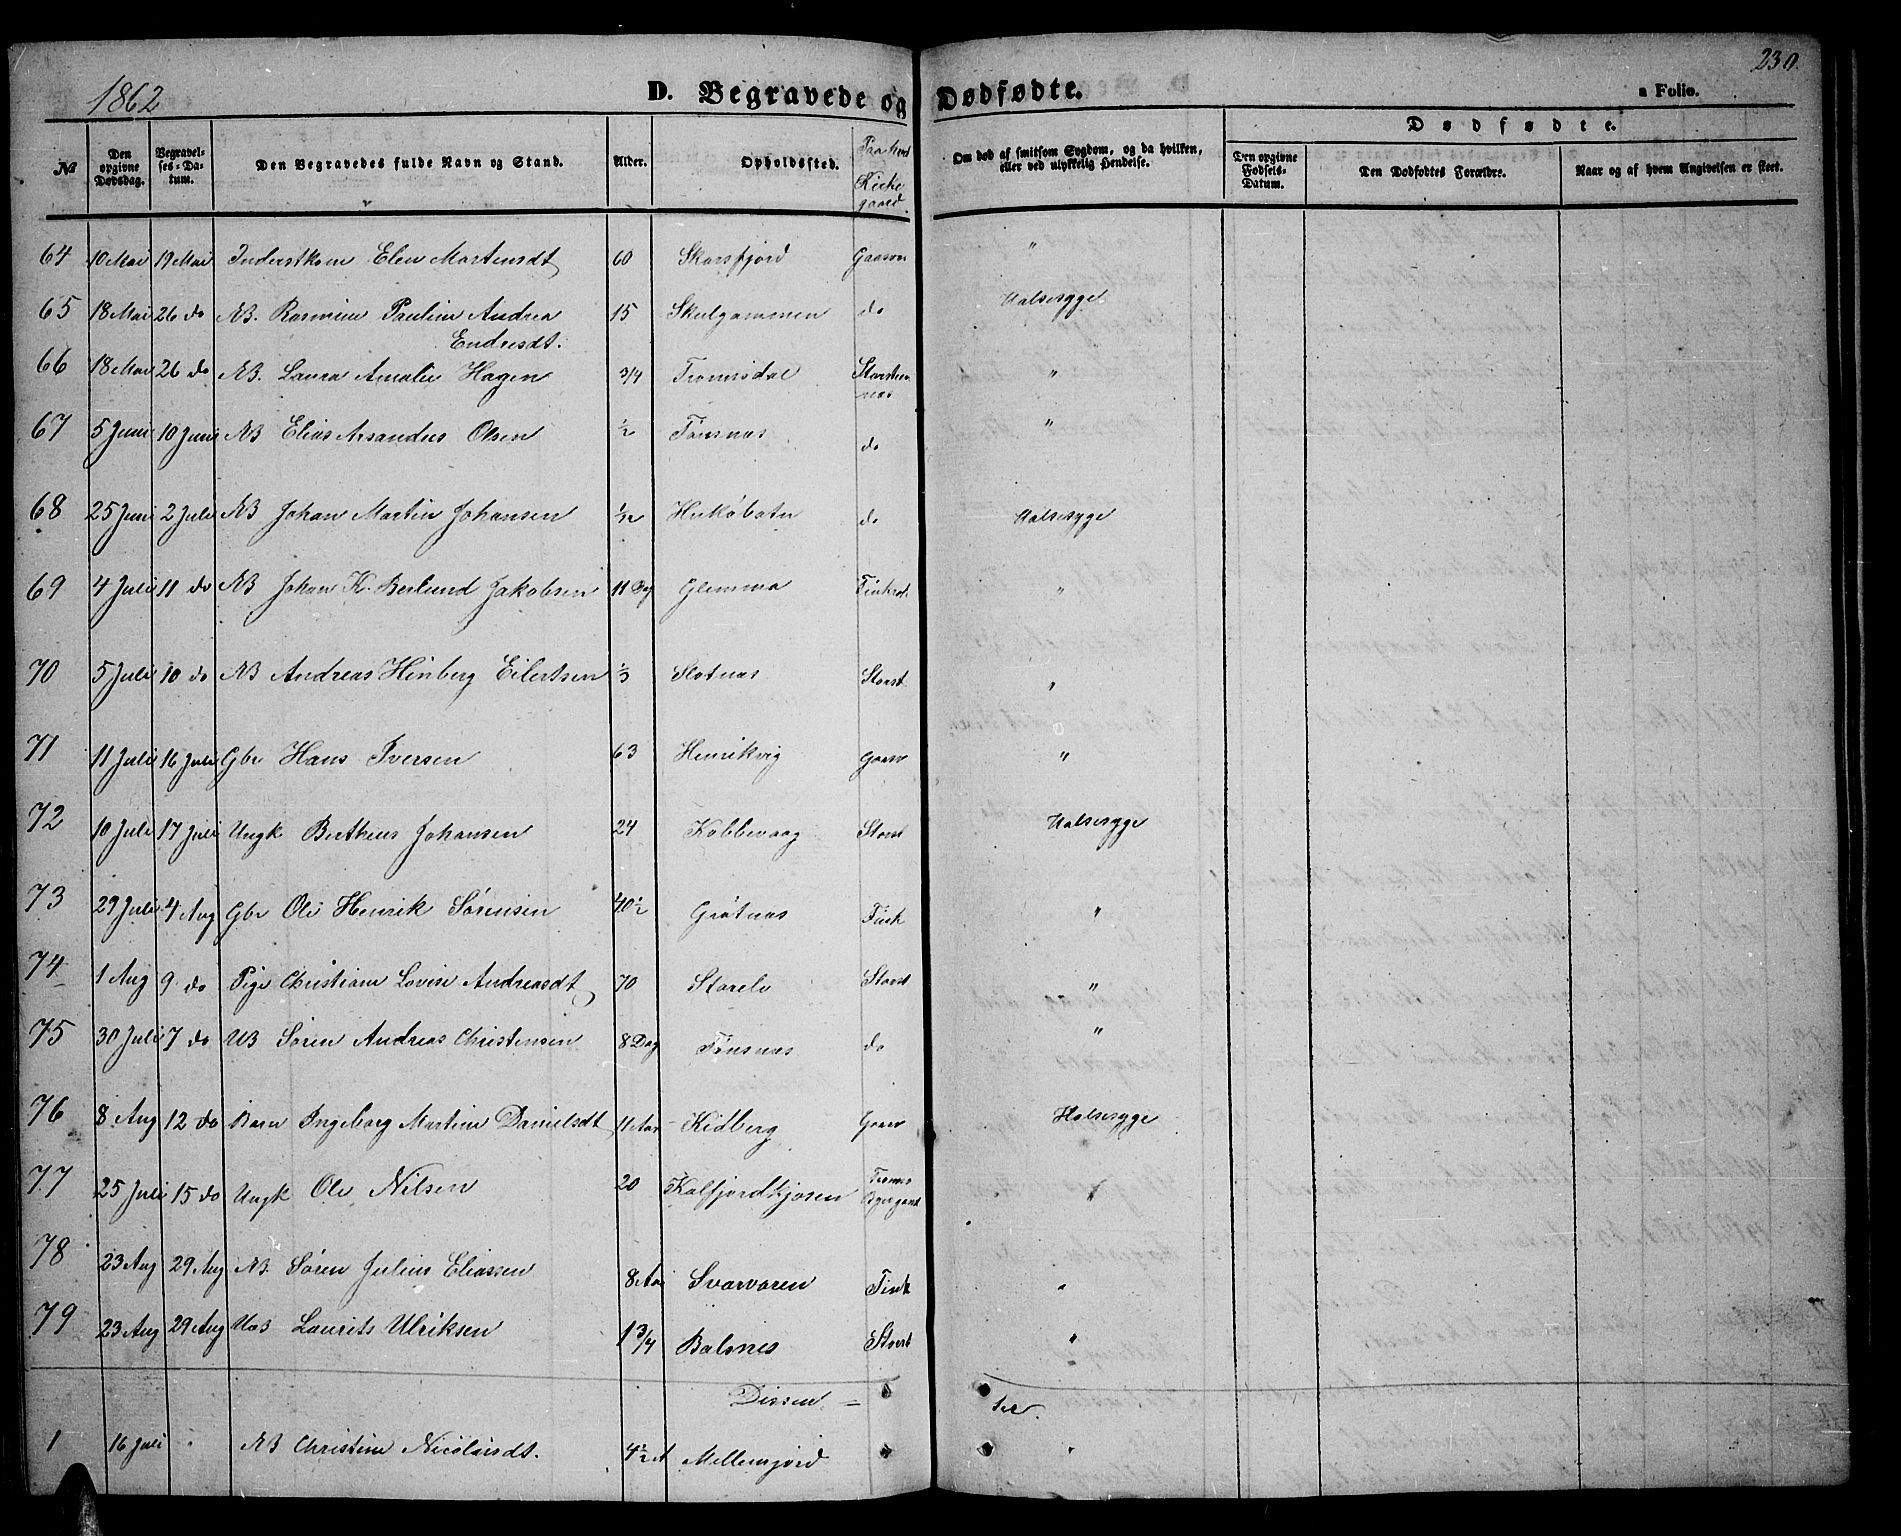 1862 D. Begravede og Dødfødte. a Folio. 230.
№ Den opgivne Dødsdag. Begravelses-Datum. Den Begravedes fulde Navn og Stand. Alder. Opholdssted. Kirkegaard. Om død af smitsom Sygdom, og da hvilken, eller ved ulykkelig Hendelse. Dødfødte. Den opgivne Fødsels-Datum. Den Dødfødtes Forældre. Naar og af hvem Angivelsen er skeet.
64 10 Mai 19 Mai Inderstkone Elen Martensdt 60 Skarsfjord "
65 18 Mai 26 do NB. Rasmine Pauline Andrea 15 Skulgammen do Halsesyge
Endresdt.
66 18 Mai 26 do NB. Laura Amalie Hagen 3/4 Tromsdal Storstennes "
67 5 Juni 10 Juni NB Elias Olsen 1/2 Tønsnas do "
68 25 Juni 2 Juli NB Johan Martin Johansen 1/12 do Halsesyge
69 4 Juli 11 do NB Johan K. Berlund Jakobsen 11 Dg Glemma Finkrok "
70 5 Juli 10 do NB Andreas Hinberg Eilertsen 1/3 Slotnas Storst "
71 11 Juli 16 Juli Gbr Hans Iversen 63 Henrikvig Gaasv "
72 10 Juli 17 Juli Ungk Bertheus Johansen 24 Kobbevaag Storst Halsesyge
73 29 Juli 4 Aug Gbr Ole Henrik Sørensen 40 1/2 Grøtnas Fink "
74 1 Aug 9 do Pige Christiane Lovise Andreasdt 70 Storelv Storst "
75 30 Juli 7 do UB Søren Andreas Christensen 8 Dag Tønsnas do "
76 8 Aug 12 do Barn Ingeborg Martine Danielsdt 11 Aar Kidberg Gaasv Halsesyge
77 25 Juli 15 do Ungk Ole Nilsen 20 Kalfjordkjosen Tromsø "
78 23 Aug 29 Aug NB. Søren Julius Eliassen 8 Aar Svarvaren Fink "
79 23 Aug 29 Aug UB Laurits Ulriksen 1 3/4 Balsnes Storst "
Dissen = ter.
1 16 Juli " NB Christine Nicolaisdt. 4 1/2 A Mellemjord " "